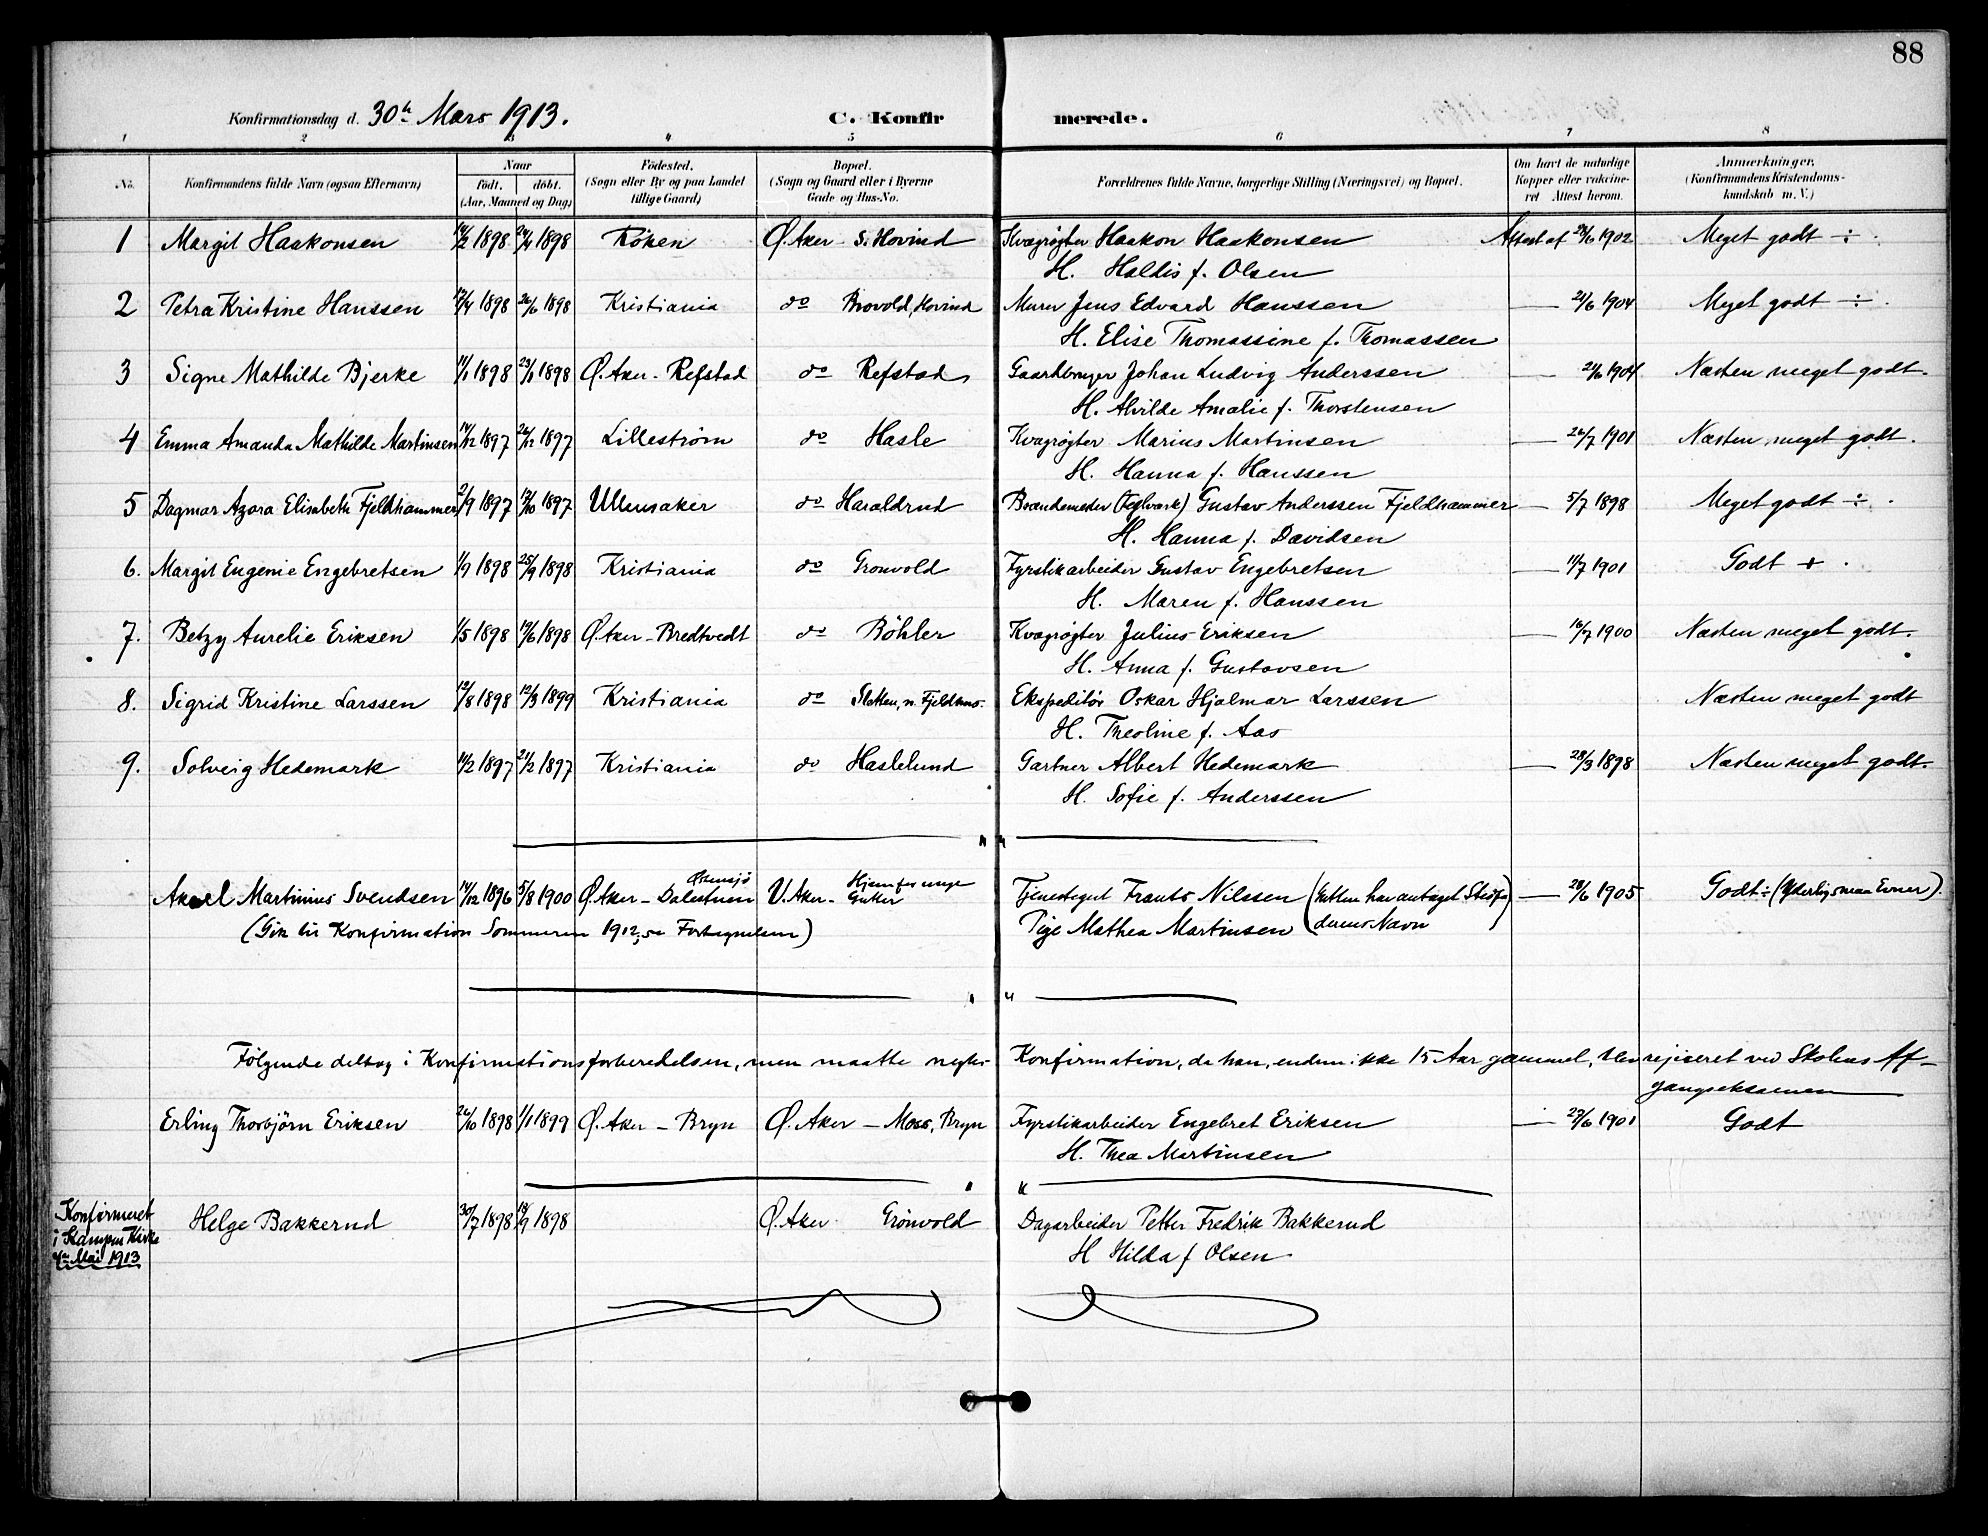 88
Konfirmationsdag d. 30te Mars 1913. C. Konfirmerede.
1 2 3 4 5 6 7 8
No. Konfirmandens fulde Navn (ogsaa Efternavn) Naar födt. döbt. (Aar, Maaned og Dag) Födested. (Sogn eller By og paa Landet tillige Gaard) Bopæl. (Sogn og Gaard eller i Byerne Gade og Hus-No. Forældrenes fulde Navne, borgerlige Stilling (Næringsvei) og Bopæl. Om havt de naturlige Kopper eller vakcineret Attest herom. Anmærkninger. (Konfirmandens Kristendomskundskab m. V.)
1 Margit Haakonsen 1898 24/4 1898 Röken Ø. Aker - S. Hovind Kvægrøgter Haakon Haakonsen Attest af 1902 Meget godt ÷
H. Haldis f. Olsen
2 Petra Kristine Hanssen 1898 26/6 1898 Kristiania do Brovold, Hovind Murer Jens Edvard Hanssen — 21/6 1904 Meget godt ÷
H. Elise Thomassine f. Thomassen
3 Signe Mathilde Bjerke 11/1 1898 23/1 1898 Ø. Aker - Refstad do Refstad Gaardbruger Johan Ludvig Anderssen — 21/6 1904 Næsten meget godt.
H. Alvilde Amalie f. Thorstensen
4 Emma Amanda Mathilde Martinsen 1897 26/12 1897 Lilleström do Hasle Kvægrøgter Marius Martinsen — 26/7 1901 Næsten meget godt.
H. Hanna f. Hanssen
5 Dagmar Azora Elisabeth Fjeldhammer 2/9 1897 17/10 1897 Ullensaker do Haraldrud Brændemester (Teglværk) Gustav Anderssen Fjeldhammer — 5/7 1898 Meget godt ÷
H. Hanna f. Davidsen
6. Margit Eugenie Engebretsen 1/9 1898 25/9 1898 Kristiania do Gronvold Fyrstikarbeider Gustav Engebretsen — 11/7 1901 Godt +
H. Maren f. Hanssen
7. Betzy Aurelie Eriksen 1/5 1898 19/6 1898 Ø. Aker - Bredtvedt do Böhler Kvægrøgter Julius Eriksen — 16/7 1900 Næsten meget godt.
H. Anna f. Gustavsen
8. Sigrid Kristine Larssen 12/8 1898 12/3 1899 Kristiania do Sletten, n. Fjeldhus. Ekspeditör Oskar Hjalmar Larssen Næsten meget godt
H. Theoline f. Aas
9. Solveig Hedemark 1897 21/2 1897 Kristiania do Haslelund Gartner Albert Hedemark — 28/3 1898 Næsten meget godt.
H. Sofie f. Anderssen
Aksel Martinius Svendsen 14/12 1896 5/8 1900 Ø. Aker - Østensjö Dalestuen V. Aker - Tjenestegut Frants Nilssen (Gutten har antaget Stedfaderens Navn) — 28/6 1905 Godt ÷ (Yderlig smaa Evner).
(Gik til Konfirmation Sommeren 1912, se Fortegnelsen) Pige Mathea Martinsen
Fölgende deltog i Konfirmationsforberedelsen, men maatte negtes Konfirmation, da han, endnu ikke 15 Aar gammel, blev rejiceret ved Skolens Afgangseksamen
Erling Thorbjörn Eriksen 26/10 1898 1/1 1899 Ø. Aker - Bryn Ø. Aker - Moss, Bryn Fyrstikarbeider Engebret Eriksen — 27/6 1901 Godt
H. Thea Martinsen
Konfirmeret
i Kampen Kirke
4de Mai 1913
Helge Bakkerud 30/7 1898 18/9 1898 Ø. Aker Grönvold Dagarbeider Petter Fredrik Bakkerud
H Hilda f Olsen